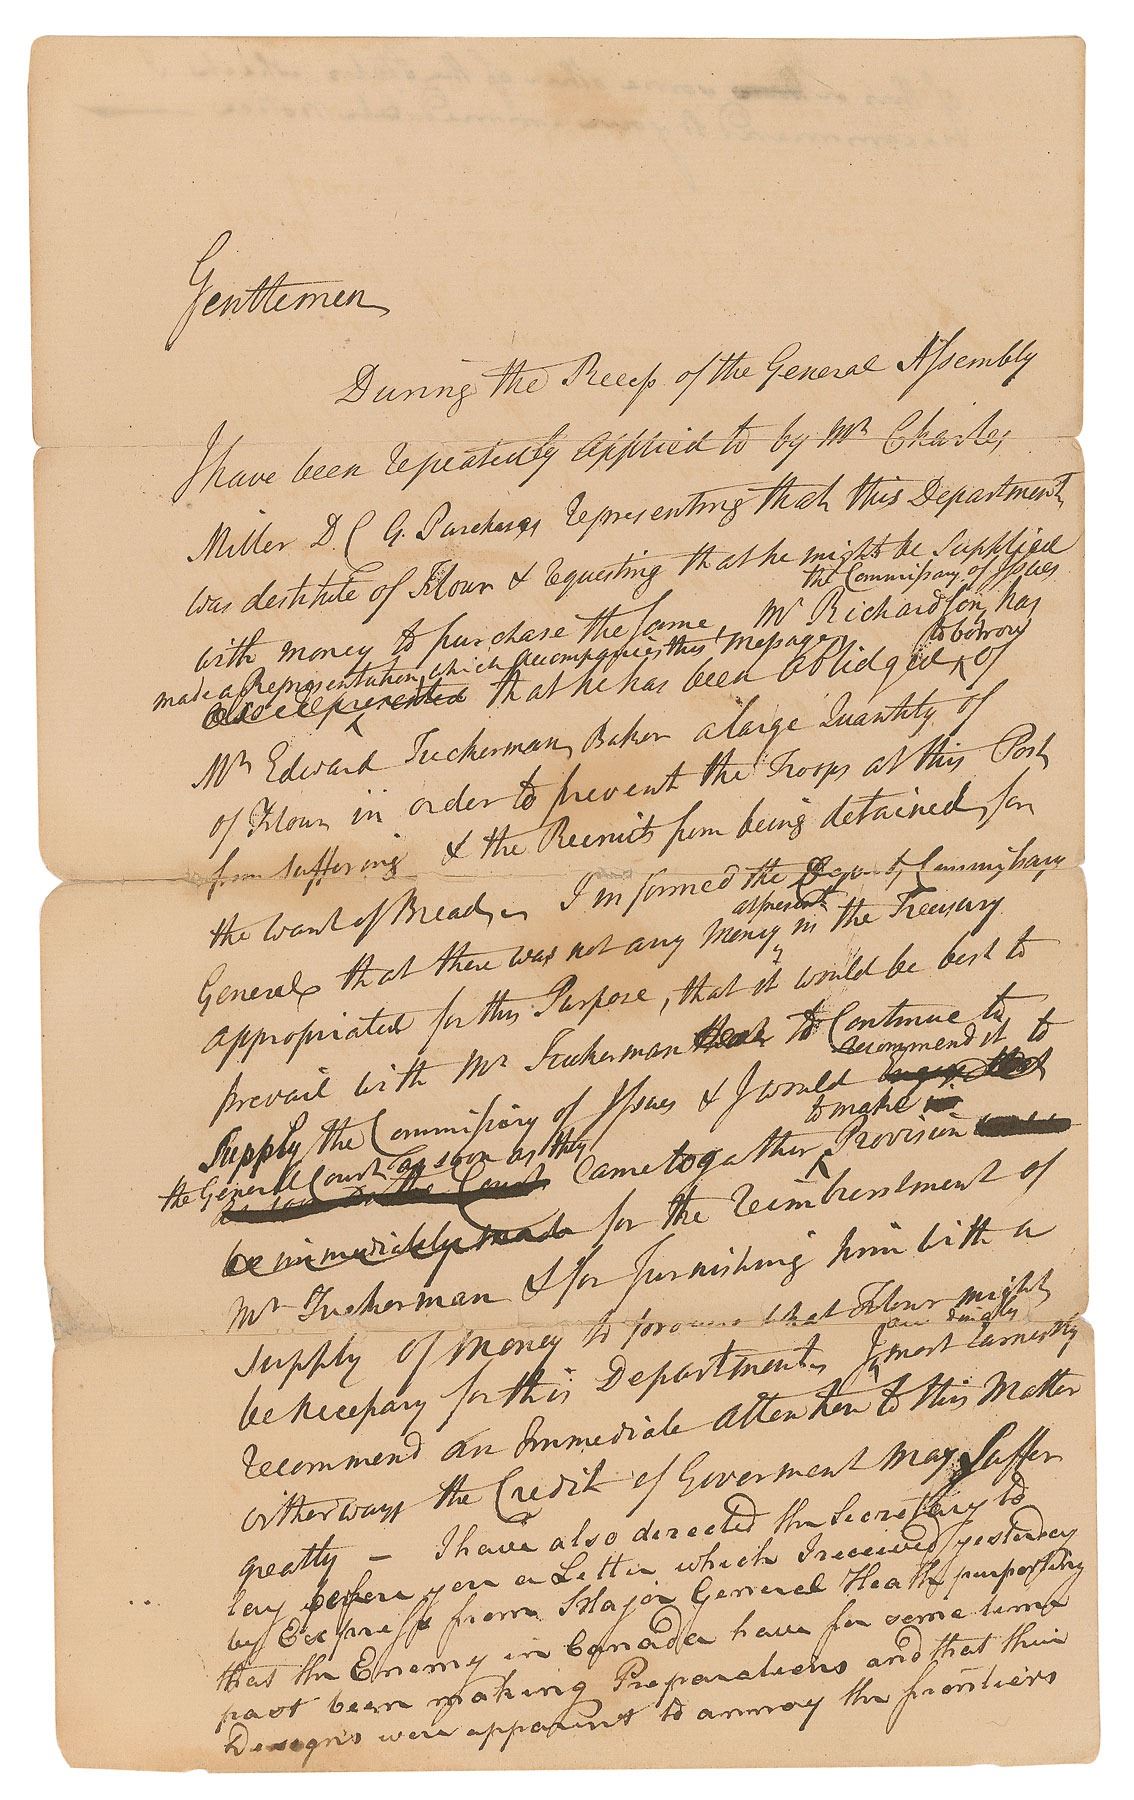 Gentlemen
During the Recess of the General Assembly
I have been repeatedly applied to by Mr Charles
Miller D. C G. Purchases representing that this Department
was destitute of Flour & requesting that he might be supplied
with money to purchase the same, Mr Richardson, the Commissary of Issues has
made a Representation, which accompanies this Message,
also represented that he has been obliged to borrow of
Mr Edward Tuckerman, Baker a large Quantity of
of Flour in order to prevent the Troops at this Post
from suffering & the Recruits from being detained for
the want of Bread, I informed the Deputy Commissary
General that there was not any money at present in the Treasury
appropriated for this Purpose, that it would be best to
prevail with Mr Tuckerman to Continue to
Supply the Commissary of Issues & I would recommend it to
the General Court as soon as they
as soon as the Court came together to make Provision
be immediately made for the reimbursement of
Mr Tuckerman & for furnishing him with a
supply of money to procure what Flour might
be necessary for this Department, I accordingly most earnestly
recommend an Immediate attention to this Matter
otherways the Credit of Goverment may Suffer
greatly – I have also directed the Secretary to
lay before you a Letter which I received yesterday
by Express from Major General Heath purporting
that the Enemy in Canada have for some time
past been making Preparations and that their
Designs were apparent to annoy the frontiers